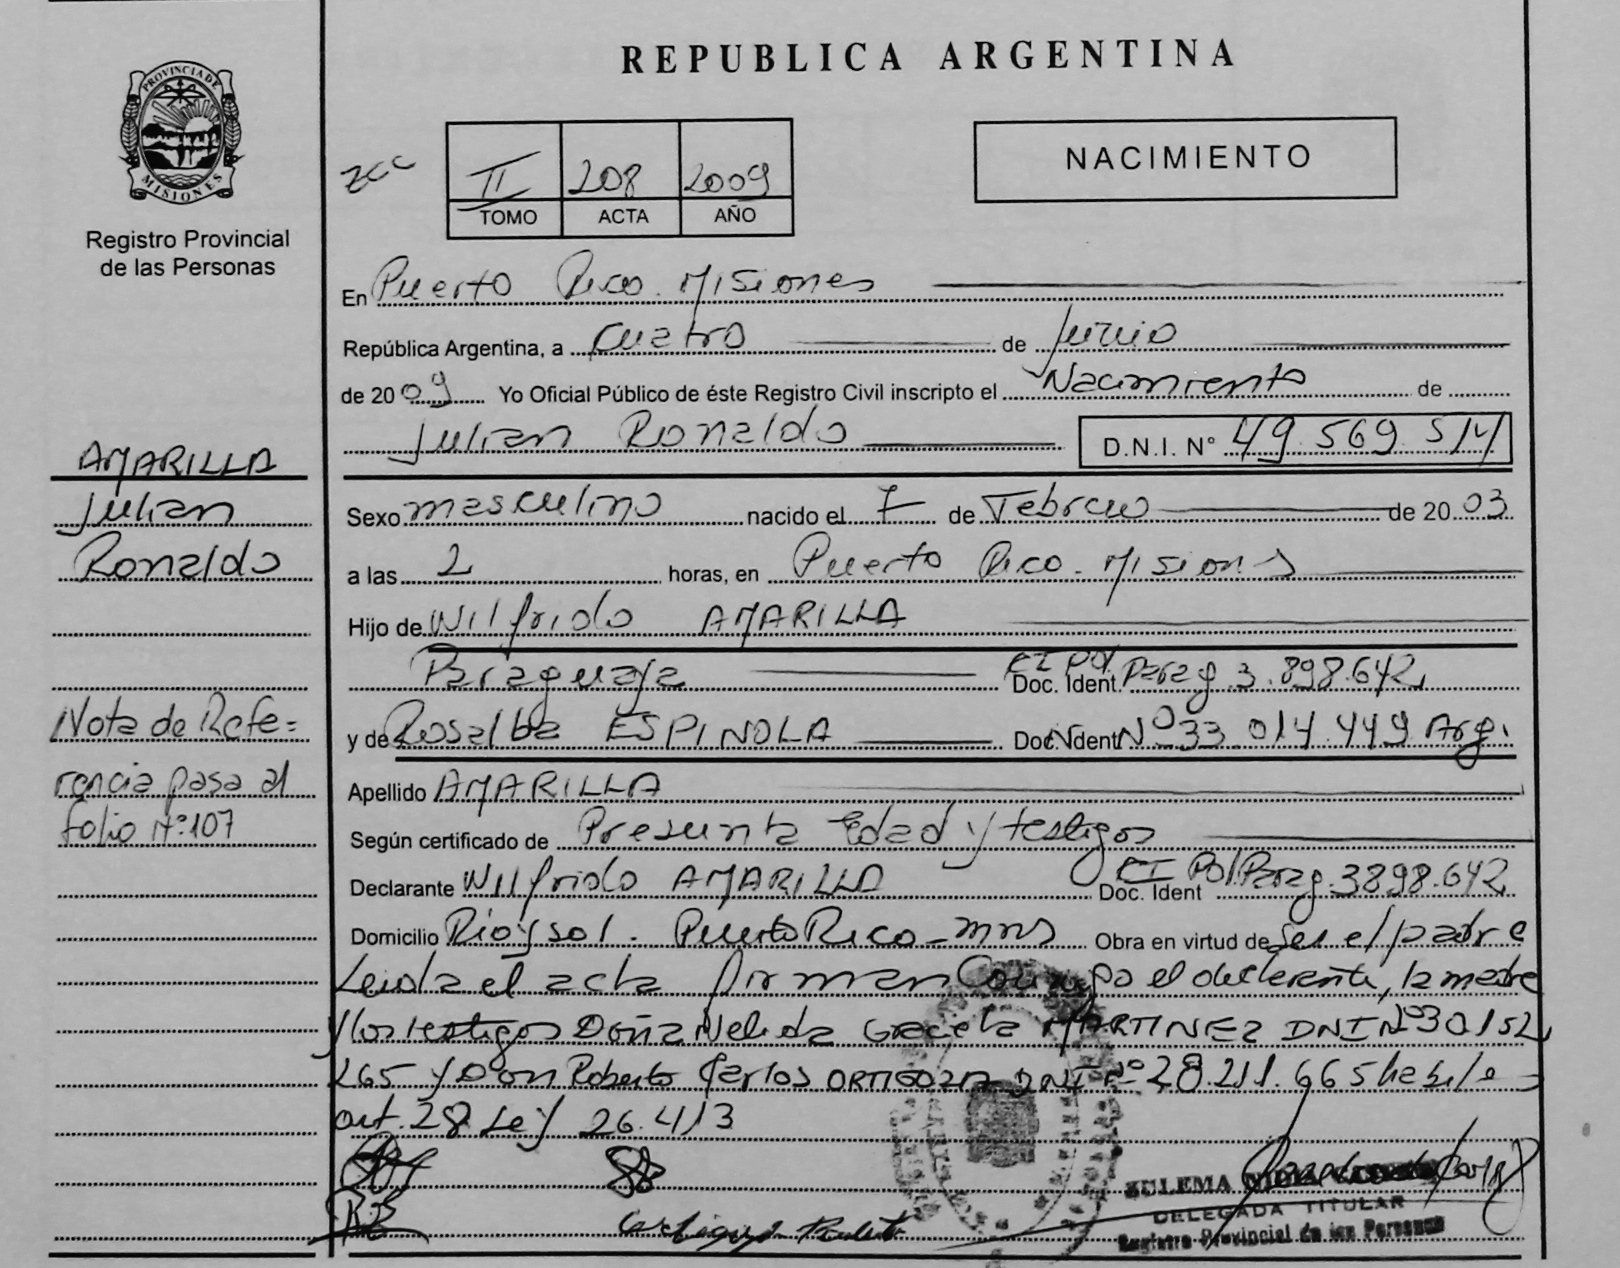 REPUBLICA ARGENTINA
PROVINCIA DE
MISIONES
Registro Provincial
de las Personas
II 208 2009
TOMO ACTA AÑO
NACIMIENTO
En Puerto Rico. Misiones
República Argentina, a Cuatro de Junio
de 2009 Yo Oficial Público de éste Registro Civil inscripto el Nacimiento de
Julian Ronaldo D.N.I. N° 49.569.514
AMARILLA
Julian
Ronaldo
Sexo masculino nacido el 7 de Febrero de 2003
a las 2 horas, en Puerto Rico. Misiones
Hijo de Wilfrido AMARILLA
Paraguaya Doc. Ident. CI Pol. Parag 3.898.642
y de Rosalba ESPINOLA Doc. Ident N° 33.014.449 Arg.
Nota de Refe=
rencia pasa al
folio N°:107
Apellido AMARILLA
Según certificado de Presunta Edad y testigos
Declarante Wilfrido AMARILLA Doc. Ident CI Pol Parag. 3898.642
Domicilio Rio y sol. Puerto Rico - mns Obra en virtud de ser el padre
Leida el acta firman Conmigo el declarante, la madre
y los testigos Doña Nelida Graciela MARTINEZ DNI N° 30.152
265 y Don Roberto Carlos ORTIGOZA DNI N° 28.211.665
art. 28 Ley 26.413
ZULEMA
DELEGADA TITULAR
Registro Provincial de las Personas